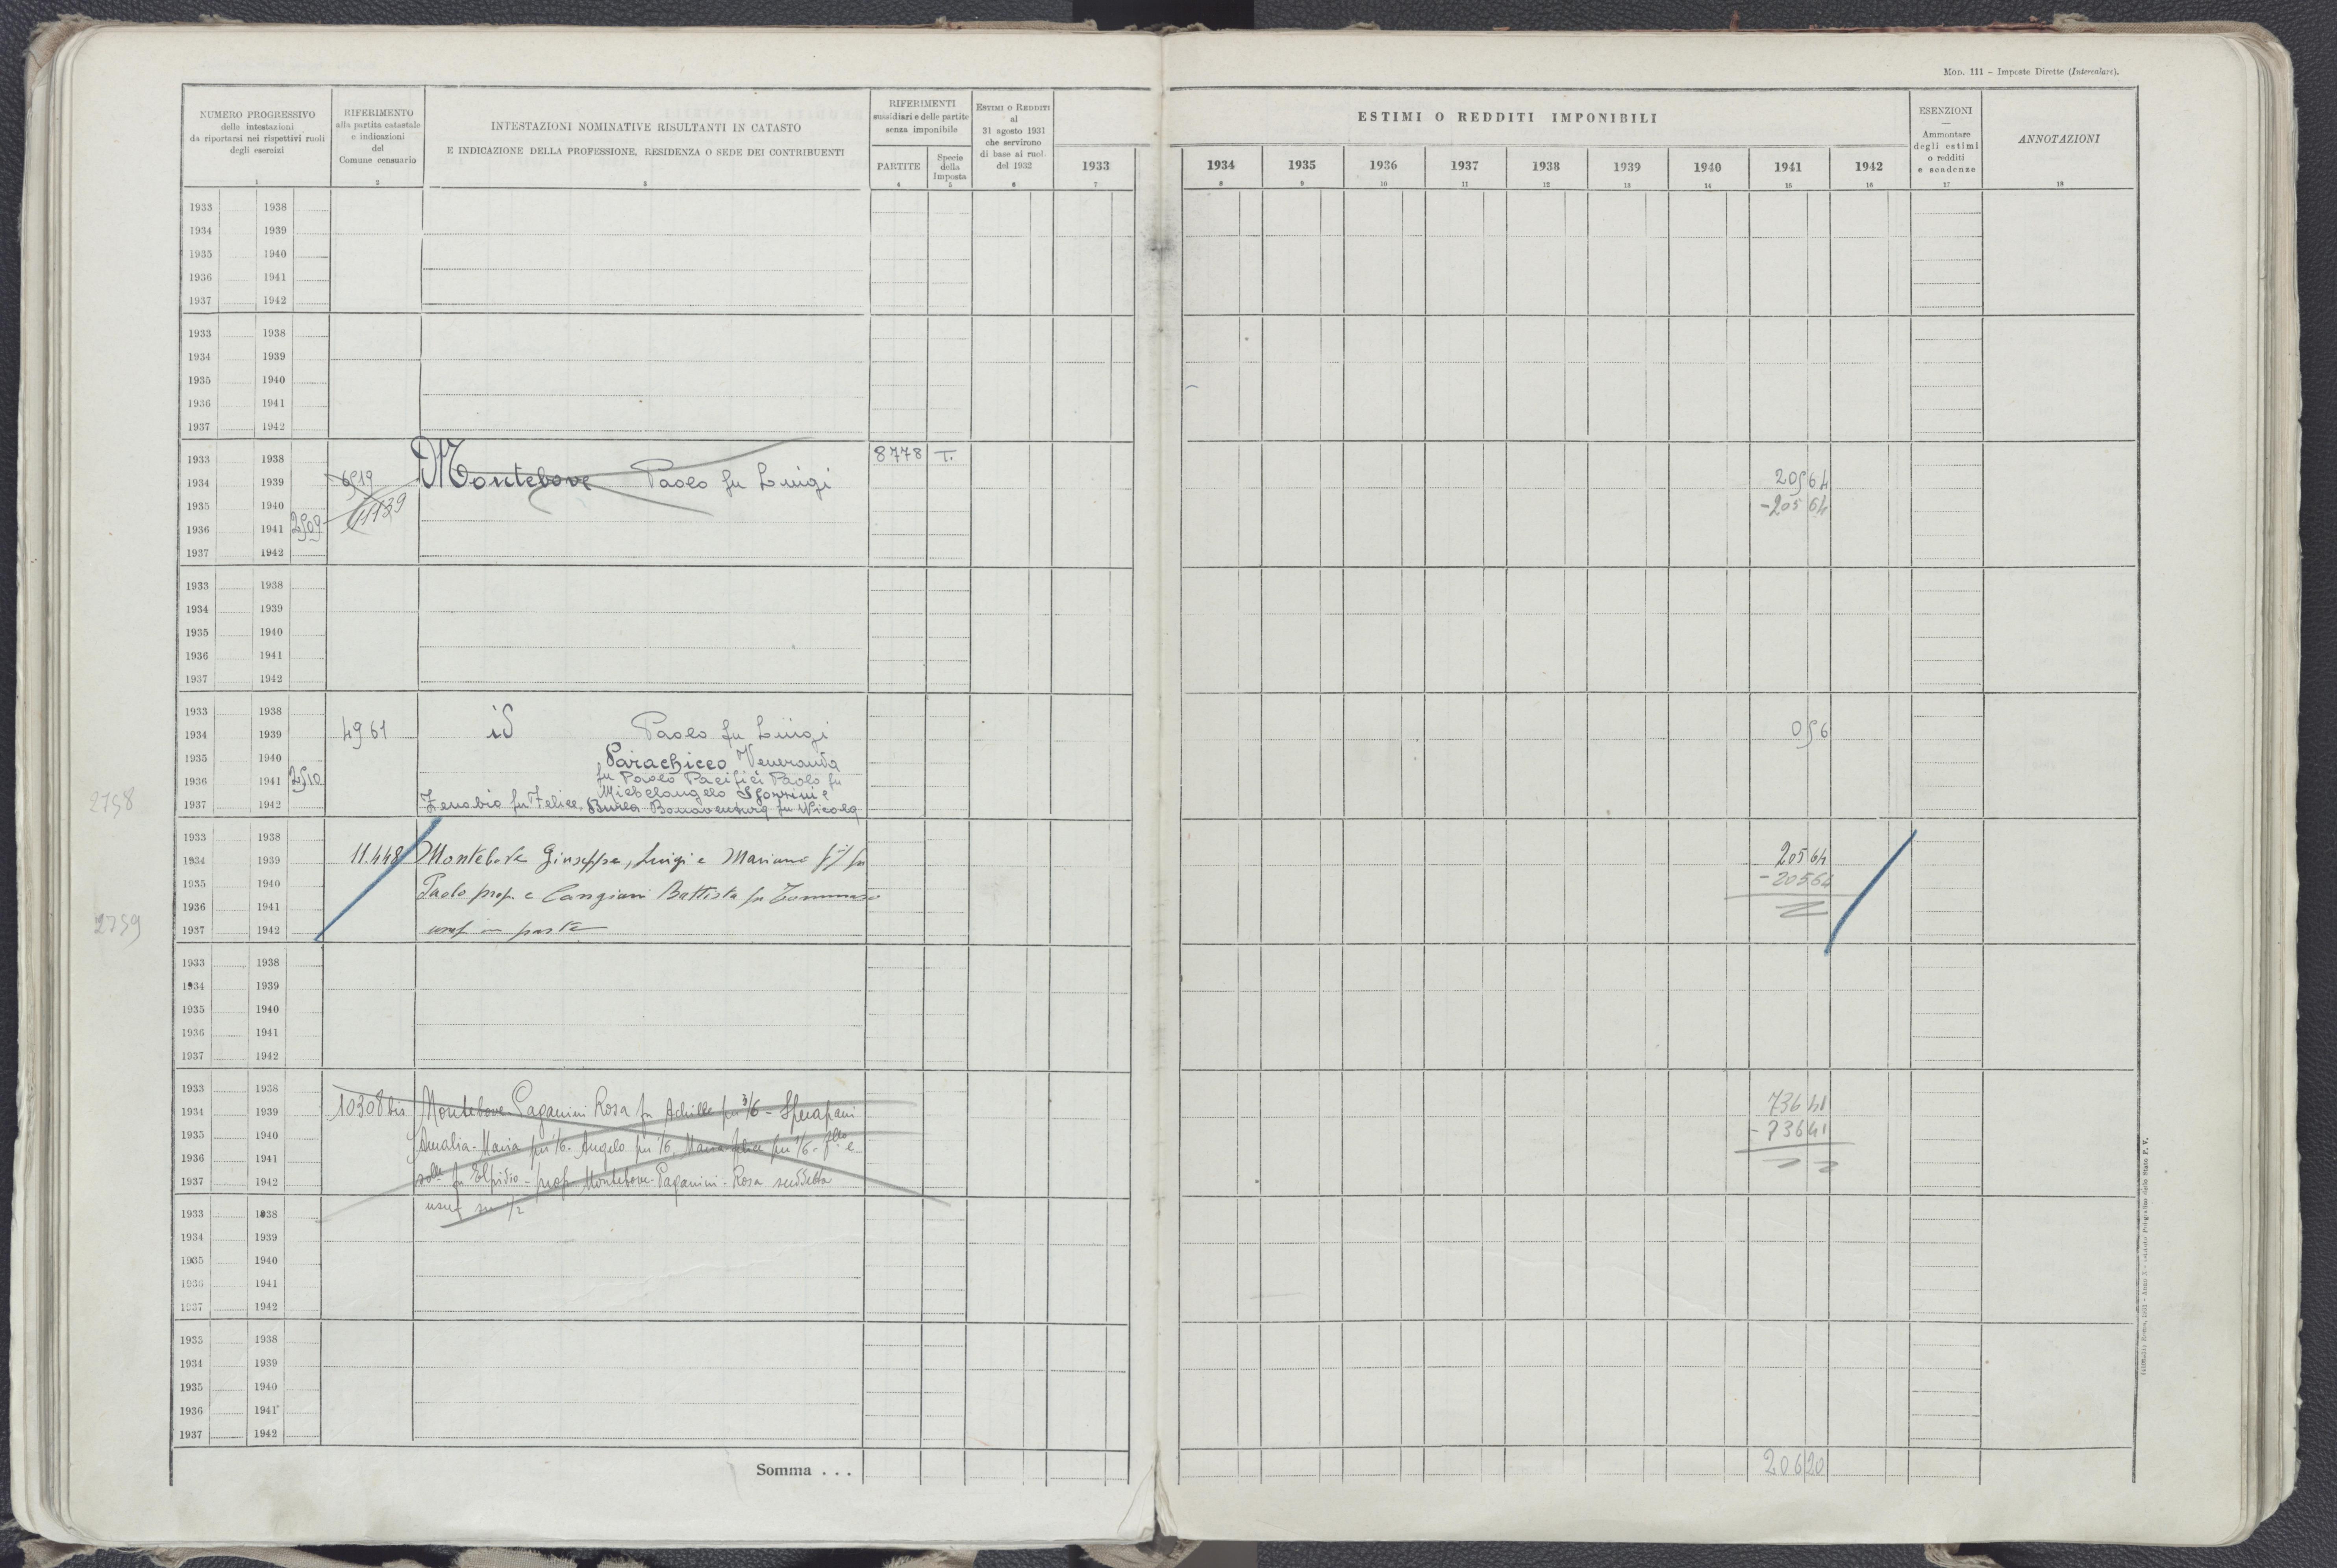 Mod. 111 - Imposte Dirette (Intercalare).
NUMERO PROGRESSIVO
delle intestazioni
da riportarsi nei rispettivi ruoli
degli esercizi
1
RIFERIMENTO
alla partita catastale
e indicazioni
del
Comune censuario
2
INTESTAZIONI NOMINATIVE RISULTANTI IN CATASTO
E INDICAZIONE DELLA PROFESSIONE, RESIDENZA O SEDE DEI CONTRIBUENTI
3
RIFERIMENTI
sussidiari e delle partite
senza imponibile
PARTITE
4
Specie
della
Imposta
5
Estimi o Redditi
al
31 agosto 1931
che servirono
di base ai ruoli
del 1932
6
1933
7
ESTIMI O REDDITI IMPONIBILI
1934 1935 1936 1937 1938 1939 1940 1941 1942
8 9 10 11 12 13 14 15 16
ESENZIONI
Ammontare
degli estimi
o redditi
e scadenze
17
ANNOTAZIONI
18
1933 1938
1934 1939
1935 1940
1936 1941
1937 1942
1933 1938
1934 1939
1935 1940
1936 1941
1937 1942
1933 1938 8778 T.
1934 1939 6519 Montebove Paolo fu Luigi 205 64
1935 1940 11139 -205 64
1936 1941 2509
1937 1942
1933 1938
1934 1939
1935 1940
1936 1941
1937 1942
1933 1938
1934 1939 4961 id Paolo fu Luigi 0 56
1935 1940 Parachicco Veneranda
1936 1941 2510 fu Paolo Pacifici Paolo fu
Michelangelo Sforzini e
2758 1937 1942 Zenobio fu Felice, Burla Bonaventura fu Nicola
1933 1938
1934 1939 11.448 Montebove Giuseppe, Luigi e Mariano fu 205 64
1935 1940 Paolo prop. e Cangiani Battista fu Tommaso -205 64
1936 1941
2759 1937 1942 usuf in parte
1933 1938
1934 1939
1935 1940
1936 1941
1937 1942
1933 1938
1934 1939 10308 bis Montebove Paganini Rosa fu Achille per 3/6 - Sperapani 736 41
1935 1940 Amalia-Maria per 1/6 - Angelo per 1/6, Maria Felice per 1/6 - -736 41
1936 1941
1937 1942 fu Elpidio - prop. Montebove-Paganini-Rosa suddetta
1933 1938 usuf su 1/2
1934 1939
1935 1940
1936 1941
1937 1942
1933 1938
1934 1939
1935 1940
1936 1941
1937 1942
Somma . . . 206 20